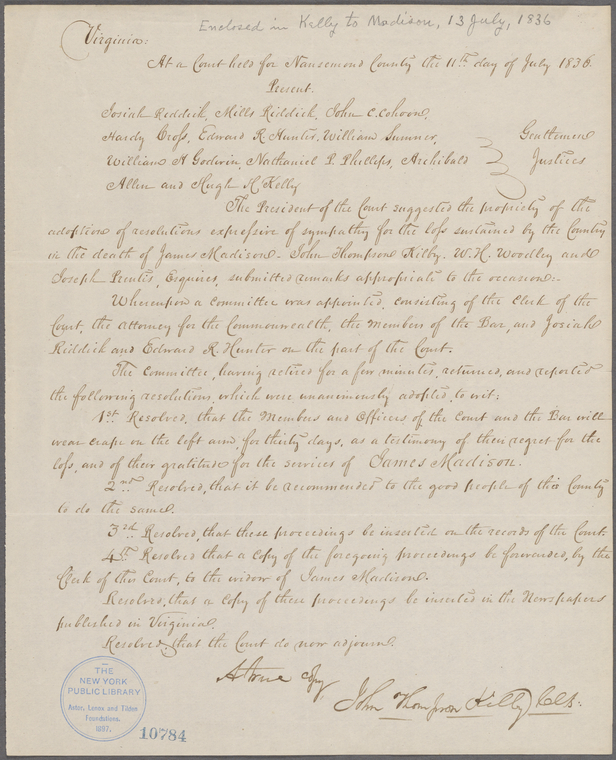 Enclosed in Kelly to Madison, 13 July, 1836
Virginia:
At a Court held for Nansemond County the 11th day of July 1836.
Present.
Josiah Riddick, Mills Riddick, John C. Cohoon,
Hardy Cross, Edward R. Hunter, William Sumner, Gentlemen
William A Godwin, Nathaniel P. Phillips, Archibald Justices
Allen and Hugh H. Kelly
The President of the Court suggested the propriety of the
adoption of resolutions expressive of sympathy for the loss sustained by the Country
in the death of James Madison. John Thompson Kilby. W. H. Woodley and
Joseph Prentis, Esquires, submitted remarks appropriate to the occasion:-
Whereupon a Committee was appointed, consisting of the Clerk of the
Court, the attorney for the Commonwealth, the members of the Bar, and Josiah
Riddick and Edward R. Hunter on the part of the Court.
The Committee, having retired for a few minutes, returned, and reported
the following resolutions, which were unanimously adopted, to wit:
1st Resolved, that the Members and Officers of the Court and the Bar will
wear crape on the left arm, for thirty days, as a testimony of their regret for the
loss, and of their gratitude for the services of James Madison.
2nd Resolved, that it be recommended to the good people of this County
to do the same.
3rd Resolved, that these proceedings be inserted on the records of the Court.
4th Resolved that a copy of the foregoing proceedings be forwarded, by the
Clerk of this Court, to the widow of James Madison.
Resolved, that a copy of these proceedings be inserted in the Newspapers
published in Virginia.
Resolved, that the Court do now adjourn.
A true copy
John Thompson Kilby Clk.
THE
NEW YORK
PUBLIC LIBRARY
Astor, Lenox and Tilden
Foundations.
1897.
10784